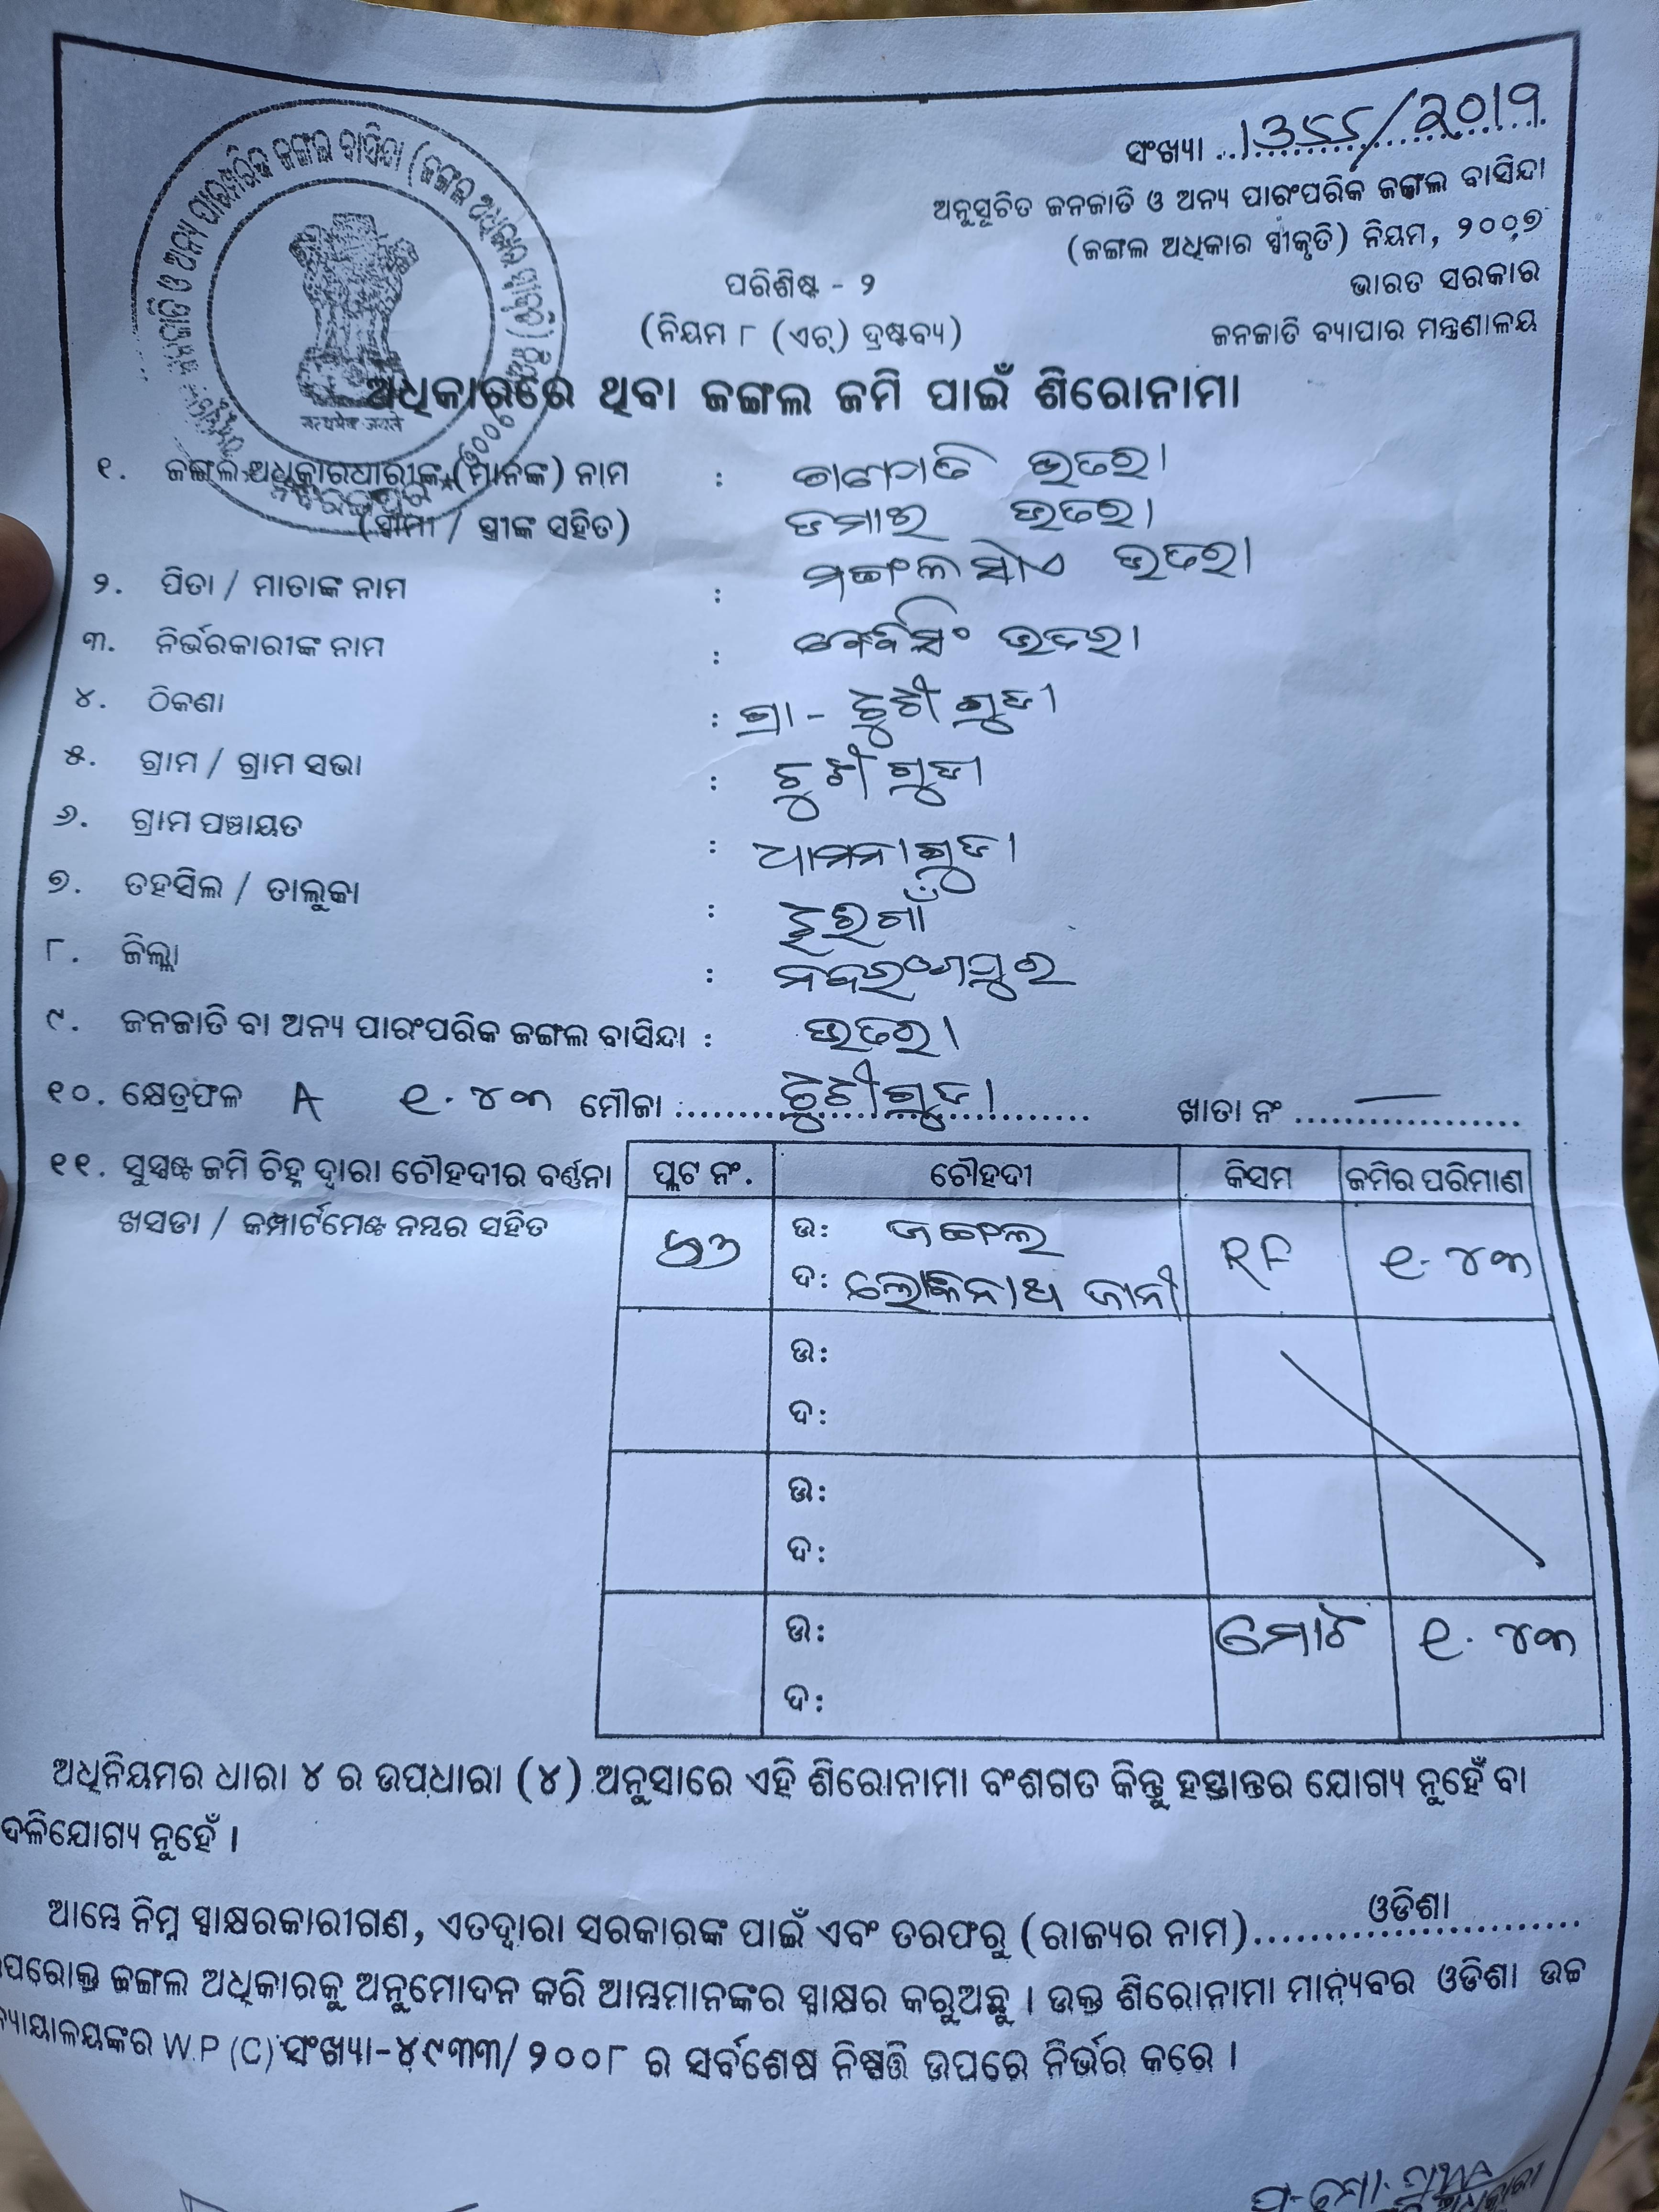 ସଂଖ୍ୟା
ଅନୁସୂଚିତ ଜନଜାତି ଓ ଅନ୍ୟ ପାରଂପରିକ ଜଙ୍ଗଲ ବାସିନ୍ଦା
(ଜଙ୍ଗଲ ଅଧିକାର ସ୍ୱୀକୃତି) ନିୟମ, ୨୦୦୭
ଭାରତ ସରକାର
ଜନଜାତି ବ୍ୟାପାର ମନ୍ତ୍ରଣାଳୟ
ପରିଶିଷ୍ଟ - ୨
(ନିୟମ ୮ (ଏଚ୍) ଦ୍ରଷ୍ଟବ୍ୟ)
ଅଧିକାରରେ ଥିବା ଜଙ୍ଗଲ ଜମି ପାଇଁ ଶିରୋନାମା
୧. ଜଙ୍ଗଲ ଅଧିକାରଧାରୀଙ୍କ (ମାନଙ୍କ) ନାମ : ଭତରା
(ସ୍ୱାମୀ / ସ୍ତ୍ରୀଙ୍କ ସହିତ) ଭତରା
୨. ପିତା / ମାତାଙ୍କ ନାମ : ଭତରା
୩. ନିର୍ଭରକାରୀଙ୍କ ନାମ : ଭତରା
୪. ଠିକଣା : ଗ୍ରା -
୫. ଗ୍ରାମ / ଗ୍ରାମ ସଭା :
୬. ଗ୍ରାମ ପଞ୍ଚାୟତ : ଧାମନାଗୁଡା
୭. ତହସିଲ / ତାଲୁକା : ଝରିଗାଁ
୮. ଜିଲ୍ଲା : ନବରଂଗପୁର
୯. ଜନଜାତି ବା ଅନ୍ୟ ପାରଂପରିକ ଜଙ୍ଗଲ ବାସିନ୍ଦା : ଭତରା
୧୦. କ୍ଷେତ୍ରଫଳ A ୧.୪୩ ମୌଜା ଖାତା ନଂ —
୧୧. ସୁସ୍ପଷ୍ଟ ଜମି ଚିହ୍ନ ଦ୍ୱାରା ଚୌହଦୀର ବର୍ଣ୍ଣନା ପ୍ଲଟ ନଂ. ଚୌହଦୀ କିସମ ଜମିର ପରିମାଣ
ଖସଡା / କମ୍ପାର୍ଟମେଣ୍ଟ ନମ୍ବର ସହିତ
ଉ: ଜଙ୍ଗଲ RF ୧.୪୩
ଦ: ଲୋକନାଥ ଜାନୀ
ଉ:
ଦ:
ଉ:
ଦ:
ଉ: ମୋଟ ୧.୪୩
ଦ:
ଅଧିନିୟମର ଧାରା ୪ ର ଉପଧାରା (୪) ଅନୁସାରେ ଏହି ଶିରୋନାମା ବଂଶଗତ କିନ୍ତୁ ହସ୍ତାନ୍ତର ଯୋଗ୍ୟ ନୁହେଁ ବା
ଦଳିଯୋଗ୍ୟ ନୁହେଁ ।
ଆମ୍ଭେ ନିମ୍ନ ସ୍ୱାକ୍ଷରକାରୀଗଣ, ଏତଦ୍ୱାରା ସରକାରଙ୍କ ପାଇଁ ଏବଂ ତରଫରୁ (ରାଜ୍ୟର ନାମ) ଓଡିଶା
ପରୋକ୍ତ ଜଙ୍ଗଲ ଅଧିକାରକୁ ଅନୁମୋଦନ କରି ଆମ୍ଭମାନଙ୍କର ସ୍ୱାକ୍ଷର କରୁଅଛୁ । ଉକ୍ତ ଶିରୋନାମା ମାନ୍ୟବର ଓଡିଶା ଉଚ୍ଚ
ନ୍ୟାୟାଳୟଙ୍କର W.P (C) ସଂଖ୍ୟା-୪୯୩୩/୨୦୦୮ ର ସର୍ବଶେଷ ନିଷ୍ପତ୍ତି ଉପରେ ନିର୍ଭର କରେ ।